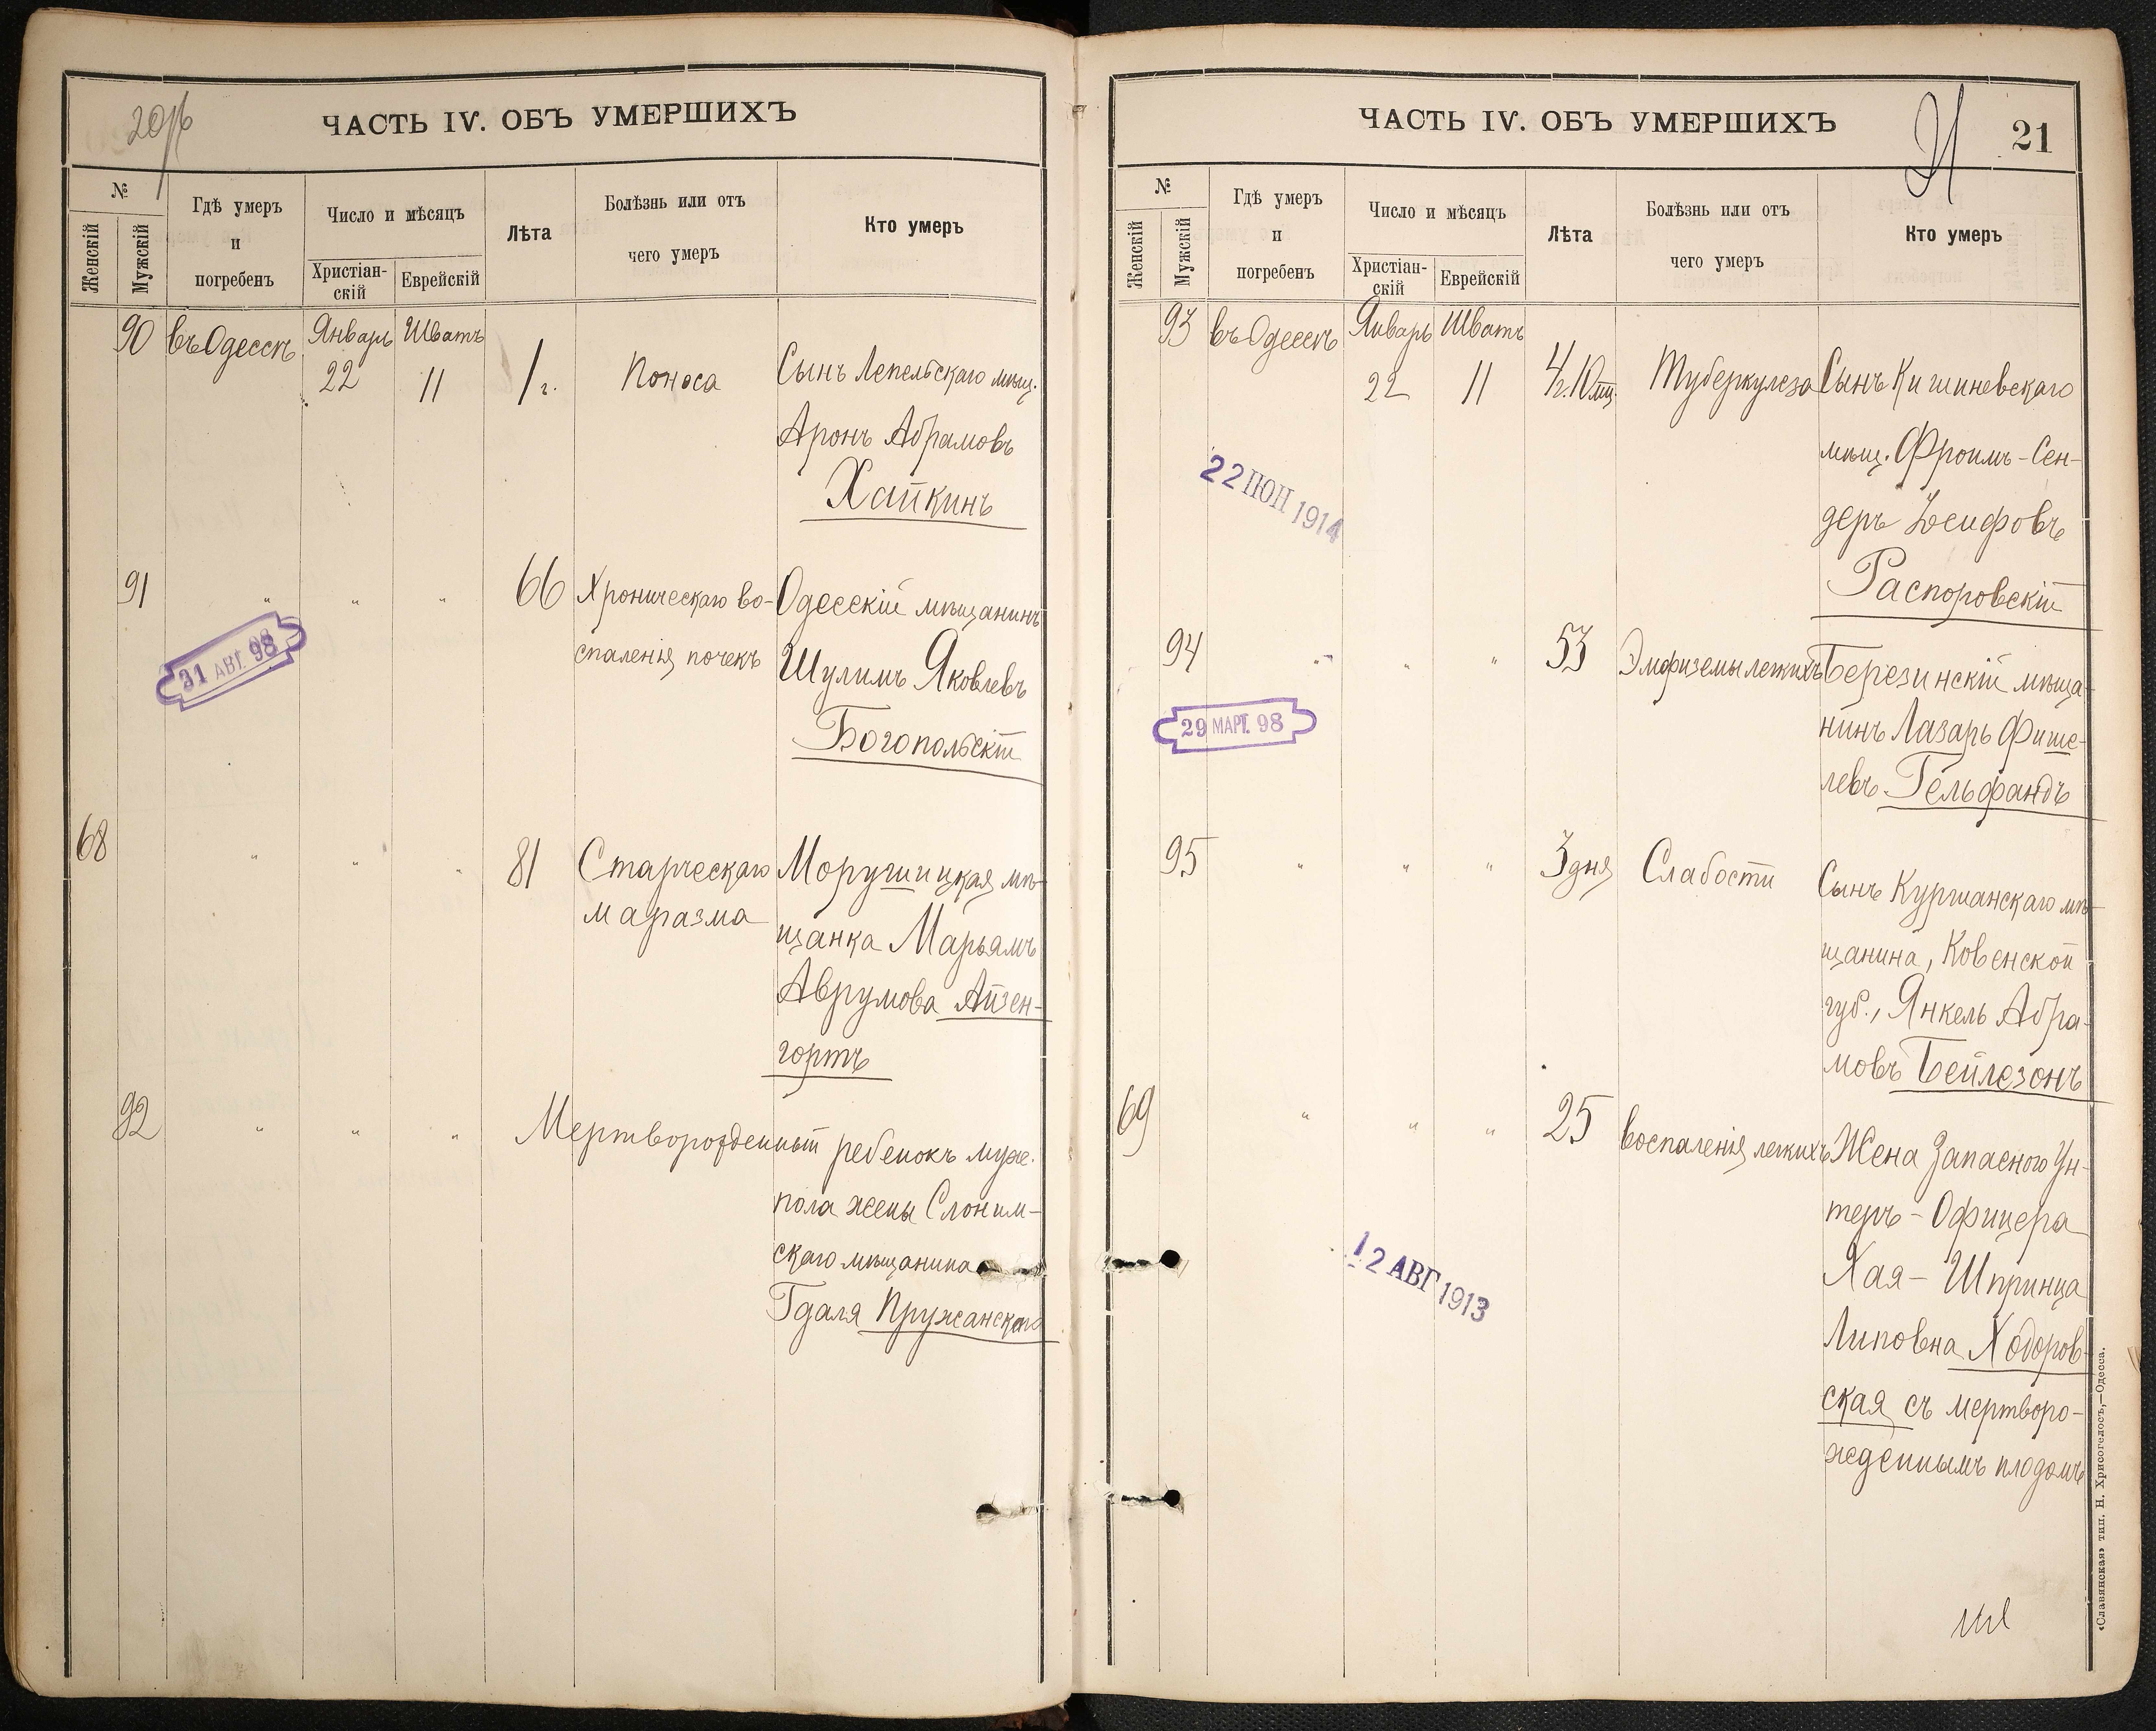 20об
ЧАСТЬ IV. ОБЪ УМЕРШИХЪ
№
Женскій
Мужскій
Гдѣ умеръ
и
погребенъ
Число и мѣсяцъ
Христіан-
скій
Еврейскій
Лѣта
Болѣзнь или отъ
чего умеръ
Кто умеръ
90 въ Одессѣ Январь 22 Шватъ 11 1 г. Поноса Сынъ Лепельскаго мѣщ.
Аронъ Абрамовъ
Хайкинъ
91 " " " 66 Хроническаго во- Одесскій мѣщанинъ
спаленія почекъ Шулимъ Яковлевъ
31 АВГ. 98
Богопольскій
68 " " " 81 Старческаго Моругшицкая мѣ-
маразма щанка Марьямъ
Аврумова Айзен-
гортъ
92 " " " Мертворожденный ребенокъ муже.
пола жены Слоним-
скаго мѣщанина
Гдаля Пружанскаго
ЧАСТЬ IV. ОБЪ УМЕРШИХЪ
21
21
№
Женскій
Мужскій
Гдѣ умеръ
и
погребенъ
Число и мѣсяцъ
Христіан-
скій
Еврейскій
Лѣта
Болѣзнь или отъ
чего умеръ
Кто умеръ
93 въ Одессѣ Январь 22 Шватъ 11 4 г. 10 мц. Туберкулеза Сынъ Кишиневскаго
мѣщ. Фроимъ-Сен-
22 ІЮН 1914
деръ Іосифовъ
Распоровскій
94 " " " 53 Эмфиземы легкихъ Березинскій мѣща-
29 МАРТ. 98
нинъ Лазарь Фише-
левъ Гельфандъ
95 " " " 3 дня Слабости Сынъ Куршанскаго мѣ-
щанина, Ковенской
губ., Янкель Абра-
мовъ Бейлезонъ
69 " " " 25 воспаленія легкихъ Жена Запасного Ун-
теръ-Офицера
12 АВГ 1913
Хая-Шпринца
Липовна Ходоров-
ская съ мертворо-
жденнымъ плодомъ
«Славянская» тип. Н. Хрисогелосъ,—Одесса.